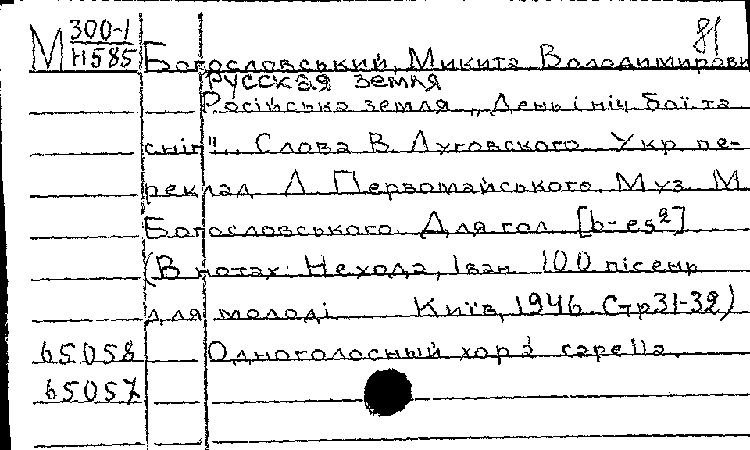 81
М 300-1
Н585 Богословський, Микита Володимирови
Русская земля
Російська земля „День і ніч бої та
сніг". Слова В. Луговского. Укр. пе-
реклад Л. Первомайського. Муз. М.
Богословського. Для гол. [b-es²]
(В нотах: Нехода, Іван. 100 пісень
для молоді Київ, 1946. Стр 31-32)
65058 Одноголосный хор a capella.
65057